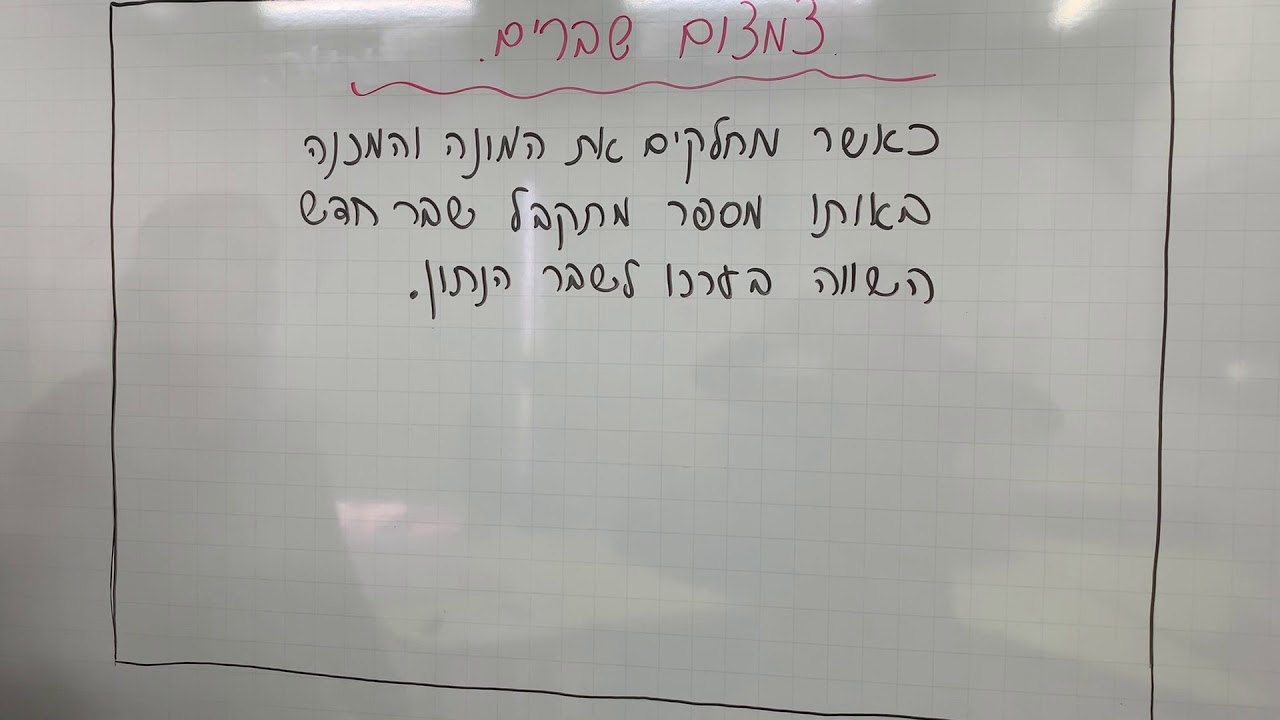 צמצום שברים.
כאשר מחלקים את המונה והמכנה
באותו מספר מתקבל שבר חדש
השווה בערכו לשבר הנתון.